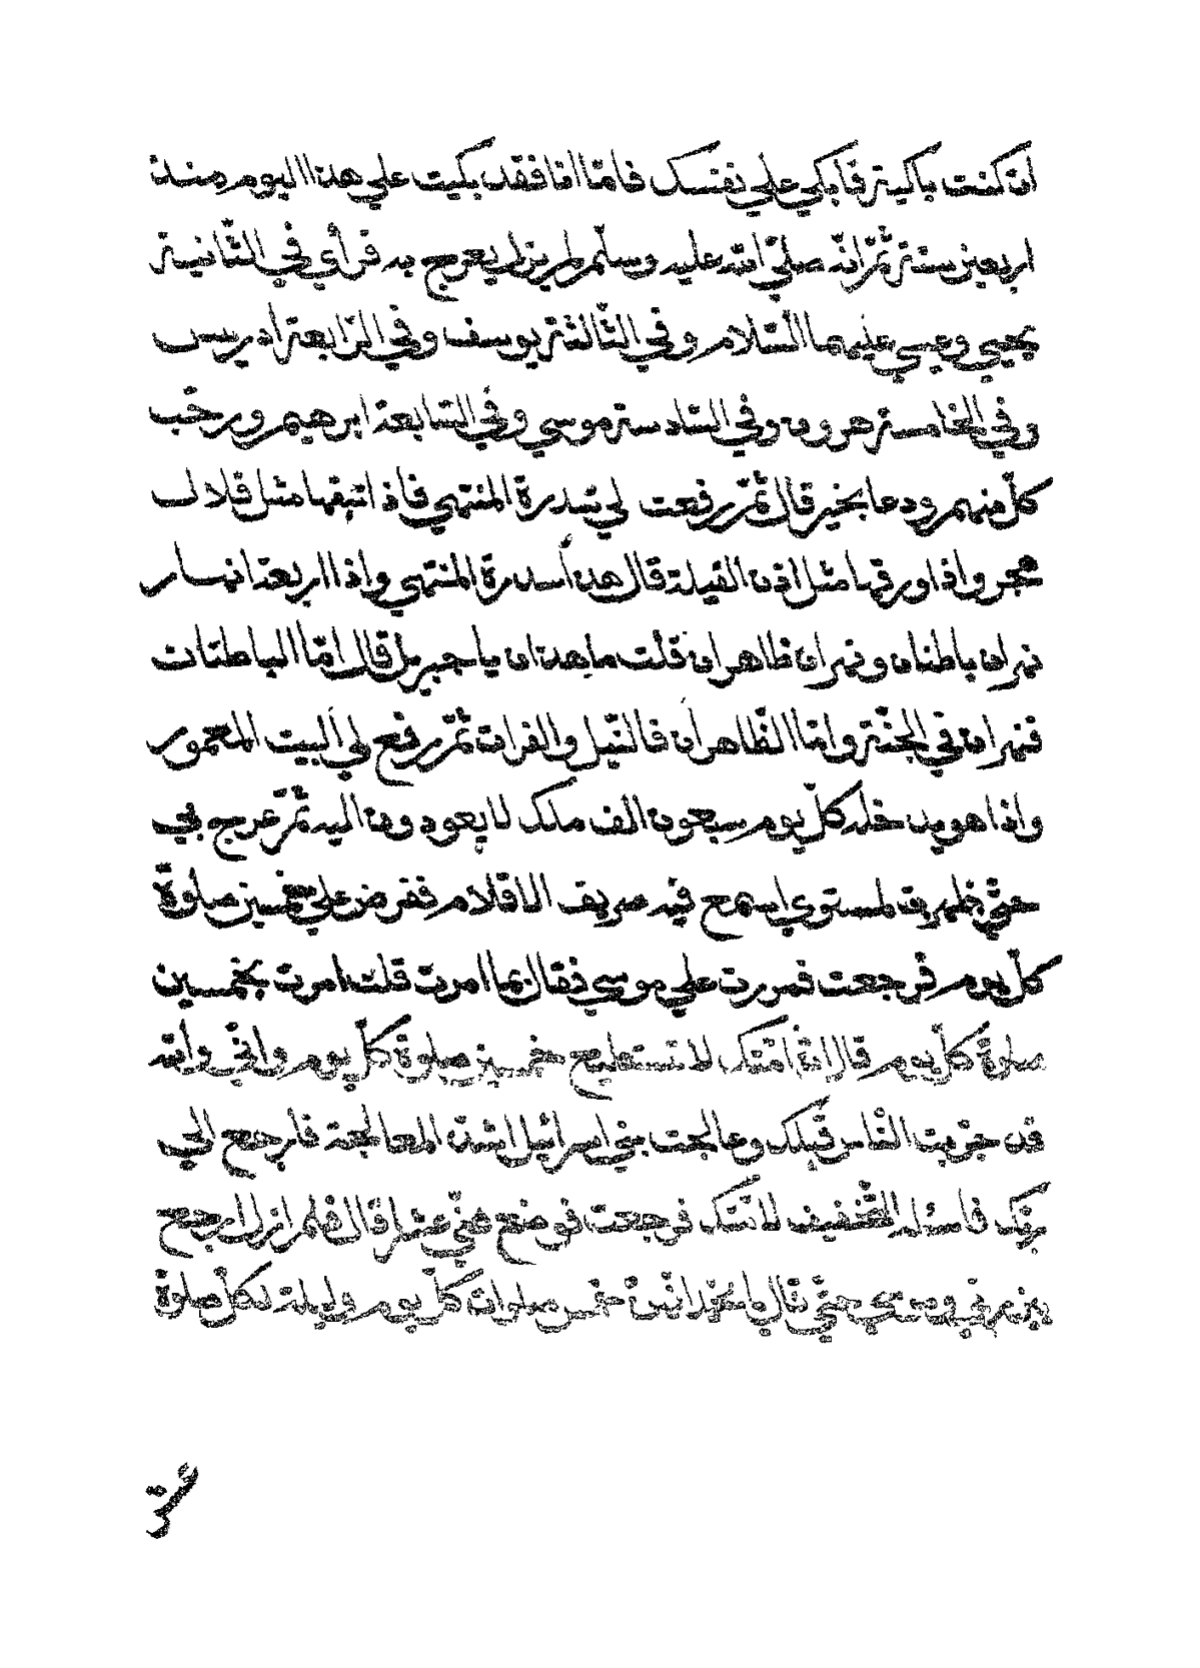 ان كنت باكية فابكي علي نفسك فامّا انا فقد بكيت علي هذا اليوم منذ
اربعين سنة ثمّ انّه صلّي الله عليه وسلّم لم يزل يعرج به فرأي في الثّانية
يحيي وعيسي عليهما السّلام وفي الثالثة يوسف وفي الرّابعة ادريس
وفي الخامسة هرون وفي السّادسة موسي وفي السّابعة ابرهيم ورحّب
كلّ منهم ودعا بخير قال ثمّ رفعت لي سدرة المنتهي فاذا نبقها مثل قلال
هجر واذا ورقها مثل اذن الفيلة قال هذا سدرة المنتهي واذا اربعة انهار
نهران باطنان ونهران ظاهران قلت ما هذان يا جبريل قال امّا الباطنات
فنهران في الجنّة وامّا الظّاهران فالنّيل والفرات ثمّ رفع لي البيت المعمور
واذا هو يدخله كلّ يوم سبعون الف ملك لا يعودون اليه ثمّ عرج بي
حتّي ظهرت لمستوي اسمع فيه صريف الاقلام ففرض علي خمسين صلوة
كلّ يوم فرجعت فمررت علي موسي فقال بما امرت قلت امرت بخمسين
صلوة كلّ يوم قال انّ امّتك لا تستطيع خمسين صلوة كلّ يوم وانّي والله
قد جرّبت النّاس قبلك وعالجت بني اسرائيل اشدّ المعالجة فارجع الي
ربّك فاسئله التّخفيف لامّتك فرجعت فوضع عنّي عشرا قال فلم ازل ارجع
بين ربّي وموسي حتّي قال يا محمّد انّهنّ خمس صلوات كلّ يوم وليلة لكلّ صلوة